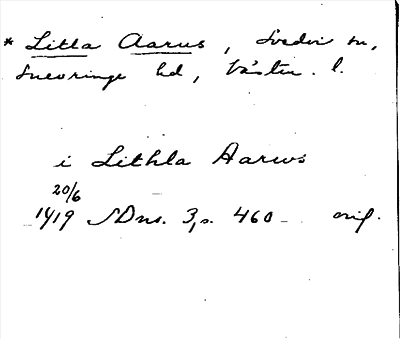 * Litla Aarus, Svedvi sn,
Snevringe hd, Västm. l.
i Lithla Aarws
20/6
1419 SDns. 3, s. 460 orig.